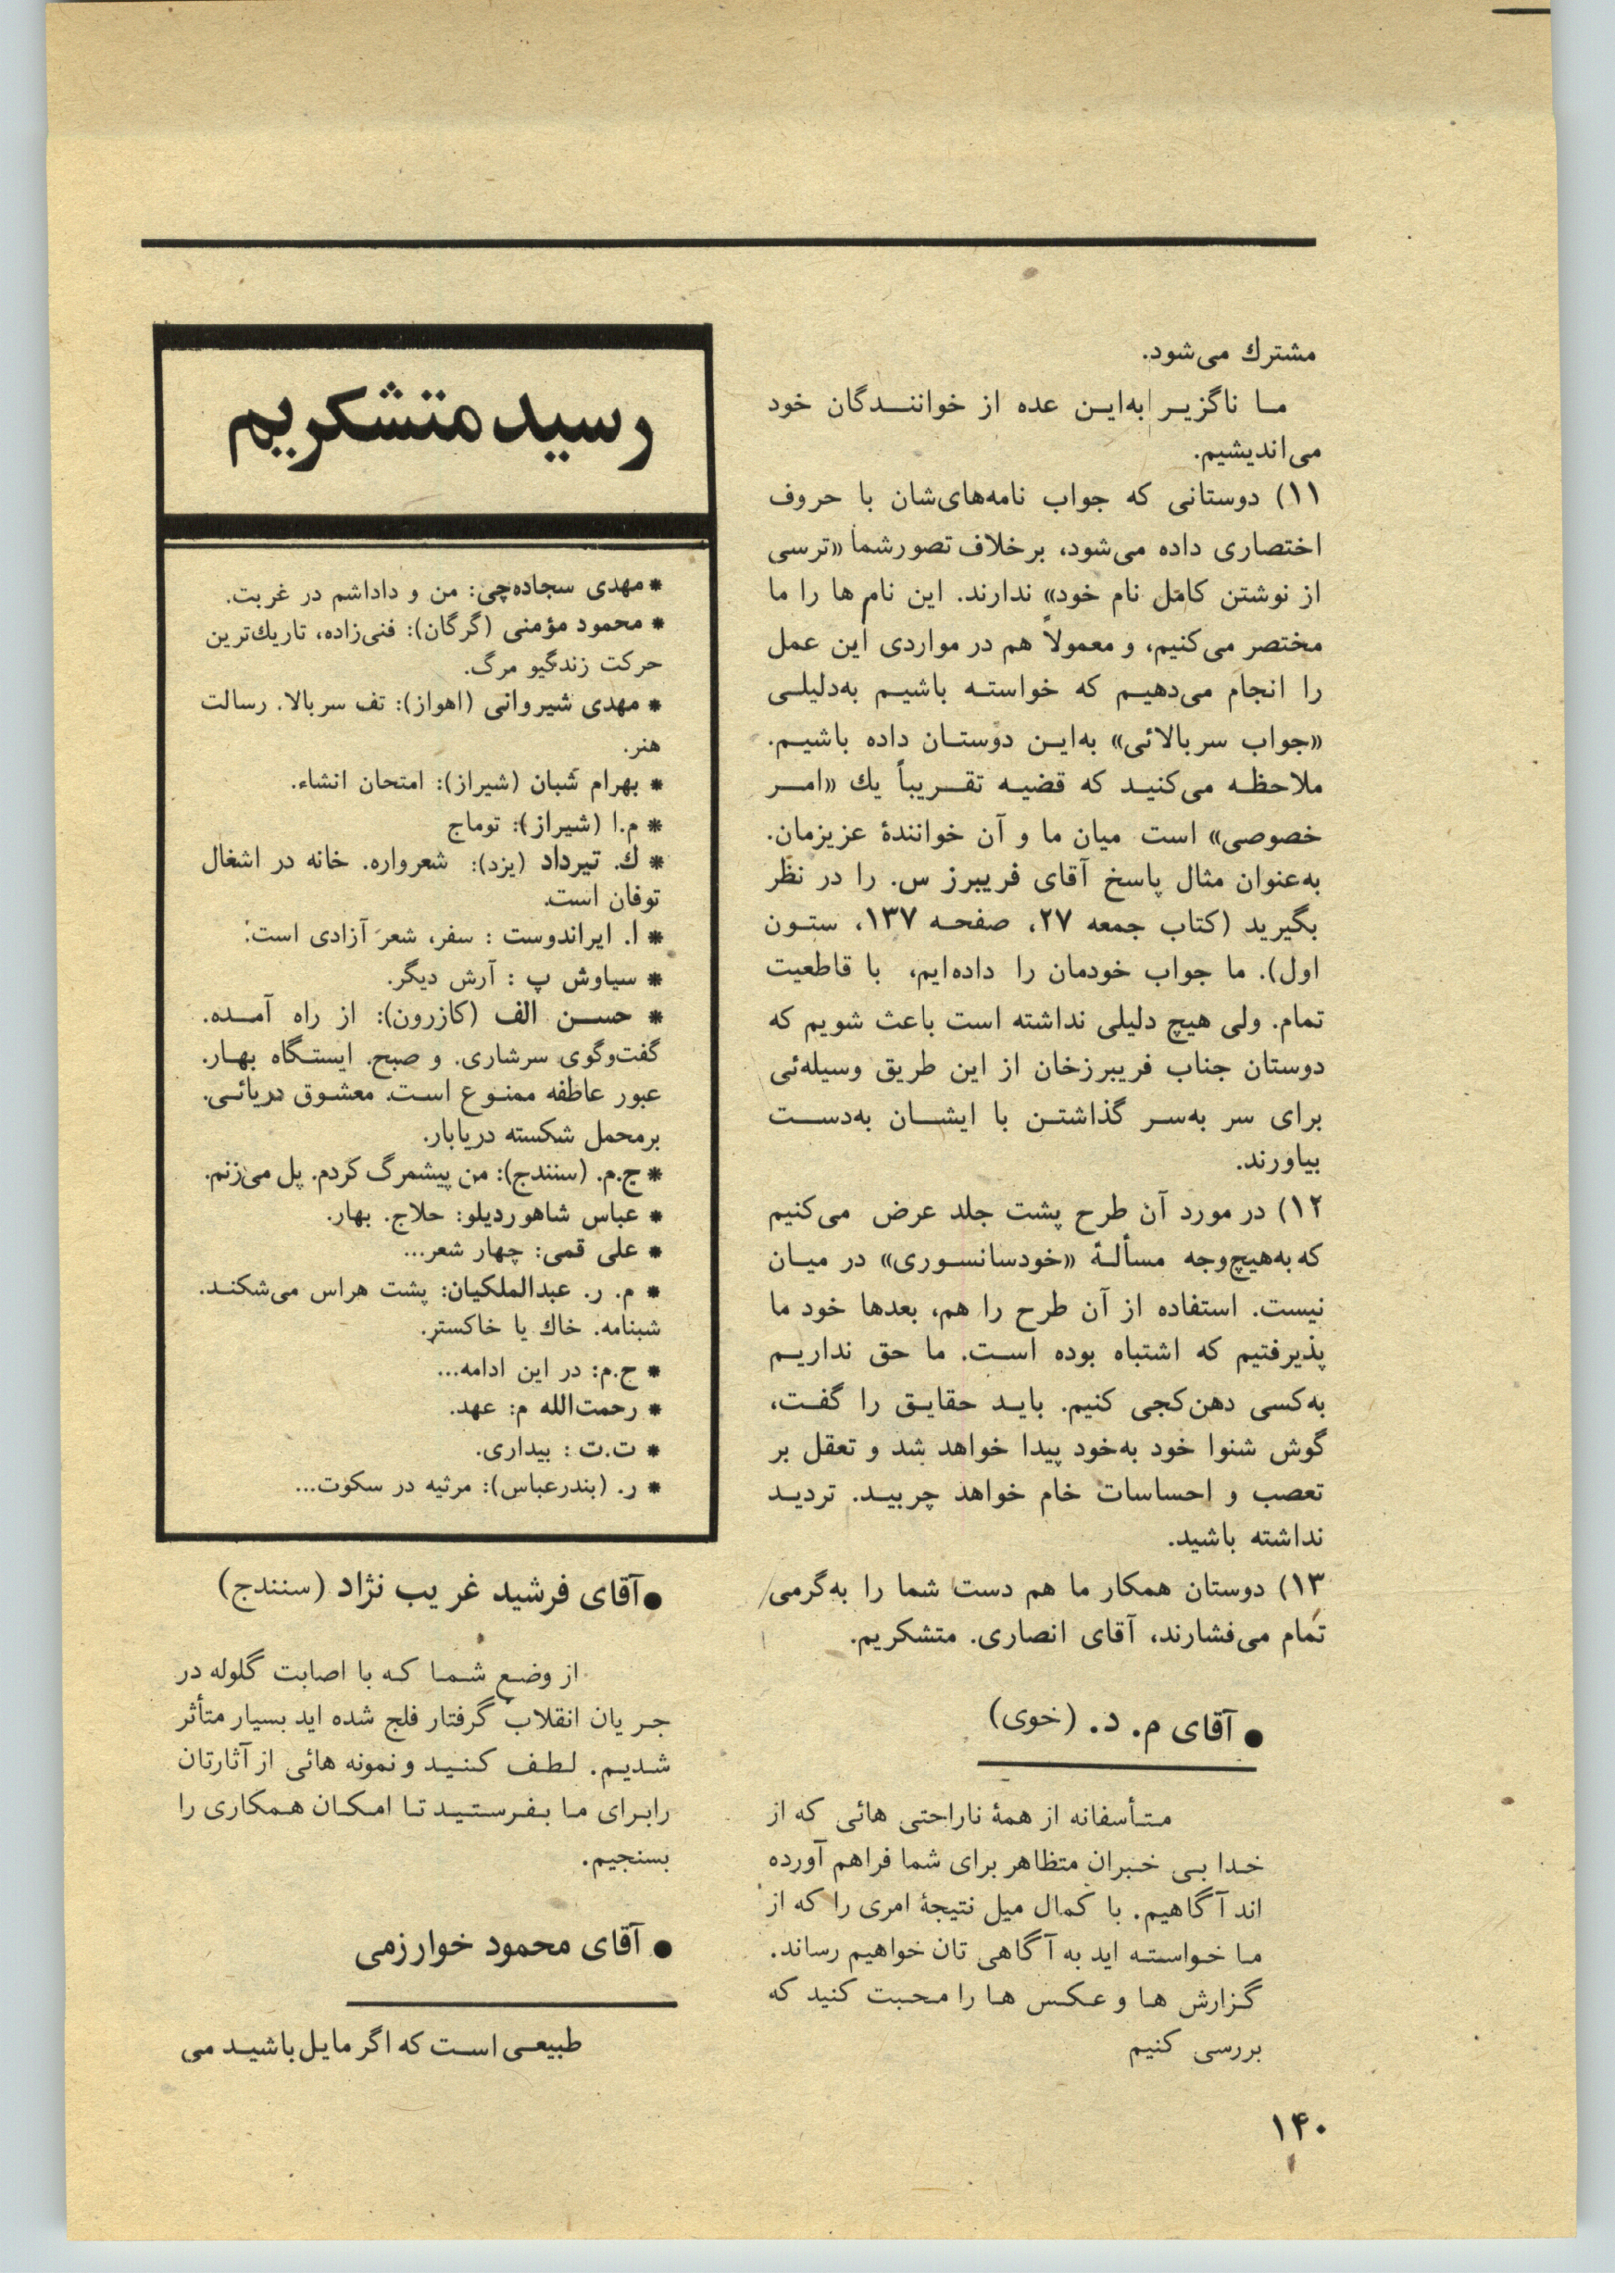 مشترك می‌شود.
ما ناگزیر به‌این عده از خوانندگان خود
می‌اندیشیم.
۱۱) دوستانی که جواب نامه‌های‌شان با حروف
اختصاری داده می‌شود، برخلاف تصورشما «ترسی
از نوشتن کامل نام خود» ندارند. این نام ها را ما
مختصر می‌کنیم، و معمولاً هم در مواردی این عمل
را انجام می‌دهیم که خواسته باشیم به‌دلیلی
«جواب سربالائی» به‌این دوستان داده باشیم.
ملاحظه می‌کنید که قضیه تقریباً یك «امر
خصوصی» است میان ما و آن خوانندهٔ عزیزمان.
به‌عنوان مثال پاسخ آقای فریبرز س. را در نظر
بگیرید (کتاب جمعه ۲۷، صفحه ۱۳۷، ستون
اول). ما جواب خودمان را داده‌ایم، با قاطعیت
تمام. ولی هیچ دلیلی نداشته است باعث شویم که
دوستان جناب فریبرزخان از این طریق وسیله‌ئی
برای سر به‌سر گذاشتن با ایشان به‌دست
بیاورند.
۱۲) در مورد آن طرح پشت جلد عرض می‌کنیم
که به‌هیچ‌وجه مسألهٔ «خودسانسوری» در میان
نیست. استفاده از آن طرح را هم، بعدها خود ما
پذیرفتیم که اشتباه بوده است. ما حق نداریم
به‌کسی دهن‌کجی کنیم. باید حقایق را گفت،
گوش شنوا خود به‌خود پیدا خواهد شد و تعقل بر
تعصب و احساسات خام خواهد چربید. تردید
نداشته باشید.
۱۳) دوستان همکار ما هم دست شما را به‌گرمی
تمام می‌فشارند، آقای انصاری. متشکریم.
● آقای م. د. (خوی)
متأسفانه از همهٔ ناراحتی هائی که از
خدا بی خبران متظاهر برای شما فراهم آورده
اند آگاهیم. با کمال میل نتیجهٔ امری را که از
ما خواسته اید به آگاهی تان خواهیم رساند.
گزارش ها و عکس ها را محبت کنید که
بررسی کنیم
رسید متشکریم
* مهدی سجاده‌چی: من و داداشم در غربت.
* محمود مؤمنی (گرگان): فنی‌زاده، تاریك‌ترین
حرکت زندگیو مرگ.
* مهدی شیروانی (اهواز): تف سربالا. رسالت
هنر.
* بهرام شبان (شیراز): امتحان انشاء.
* م.ا (شیراز): توماج
* ك. تیرداد (یزد): شعرواره. خانه در اشغال
توفان است.
* ا. ایراندوست : سفر، شعر آزادی است.
* سیاوش پ : آرش دیگر.
* حسن الف (کازرون): از راه آمده.
گفت‌وگوی سرشاری. و صبح. ایستگاه بهار.
عبور عاطفه ممنوع است. معشوق دریائی.
برمحمل شکسته دریابار.
* ج.م. (سنندج): من پیشمرگ کردم. پل می‌زنم.
* عباس شاهوردیلو: حلاج. بهار.
* علی قمی: چهار شعر...
* م. ر. عبدالملکیان: پشت هراس می‌شکند.
شبنامه. خاك یا خاکستر.
* ح.م: در این ادامه...
* رحمت‌الله م: عهد.
* ت.ت : بیداری.
* ر. (بندرعباس): مرثیه در سکوت...
●آقای فرشید غریب نژاد (سنندج)
از وضع شما که با اصابت گلوله در
جریان انقلاب گرفتار فلج شده اید بسیار متأثر
شدیم. لطف کنید و نمونه هائی از آثارتان
رابرای ما بفرستید تا امکان همکاری را
بسنجیم.
● آقای محمود خوارزمی
طبیعی است که اگر مایل باشید می
۱۴۰